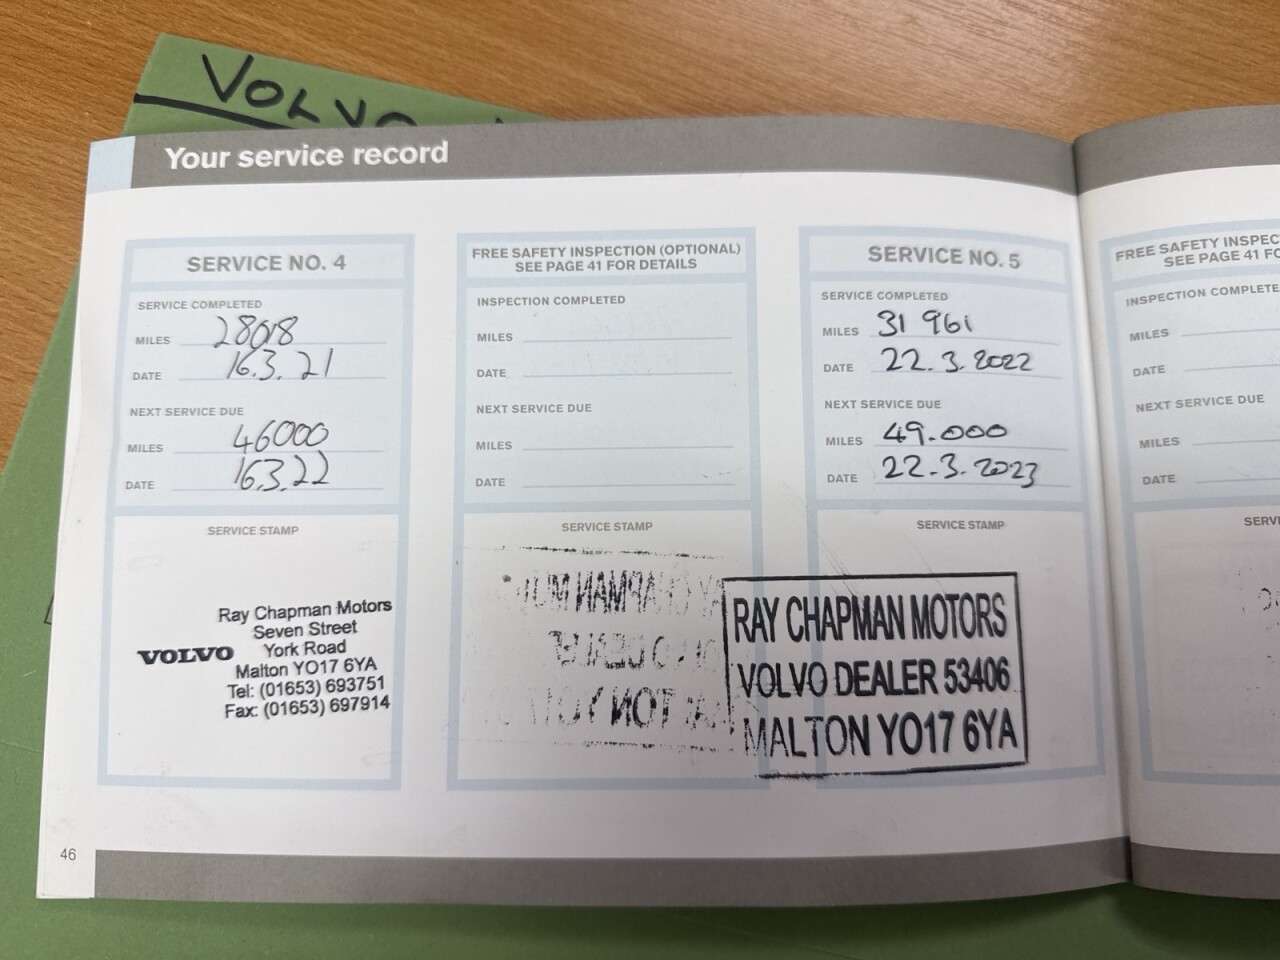 VOLVO
Your service record
SERVICE NO. 4
SERVICE COMPLETED
MILES 28018
DATE 16.3.21
NEXT SERVICE DUE
MILES 46000
DATE 16.3.22
SERVICE STAMP
VOLVO
Ray Chapman Motors
Seven Street
York Road
Malton YO17 6YA
Tel: (01653) 693751
Fax: (01653) 697914
FREE SAFETY INSPECTION (OPTIONAL)
SEE PAGE 41 FOR DETAILS
INSPECTION COMPLETED
MILES
DATE
NEXT SERVICE DUE
MILES
DATE
SERVICE STAMP
SERVICE NO. 5
SERVICE COMPLETED
MILES 31 961
DATE 22.3.2022
NEXT SERVICE DUE
MILES 49.000
DATE 22.3.2023
SERVICE STAMP
RAY CHAPMAN MOTORS
VOLVO DEALER 53406
MALTON YO17 6YA
FREE SAFETY INSPEC
SEE PAGE 41 FO
INSPECTION COMPLETE
MILES
DATE
NEXT SERVICE DUE
MILES
DATE
SERVI
46